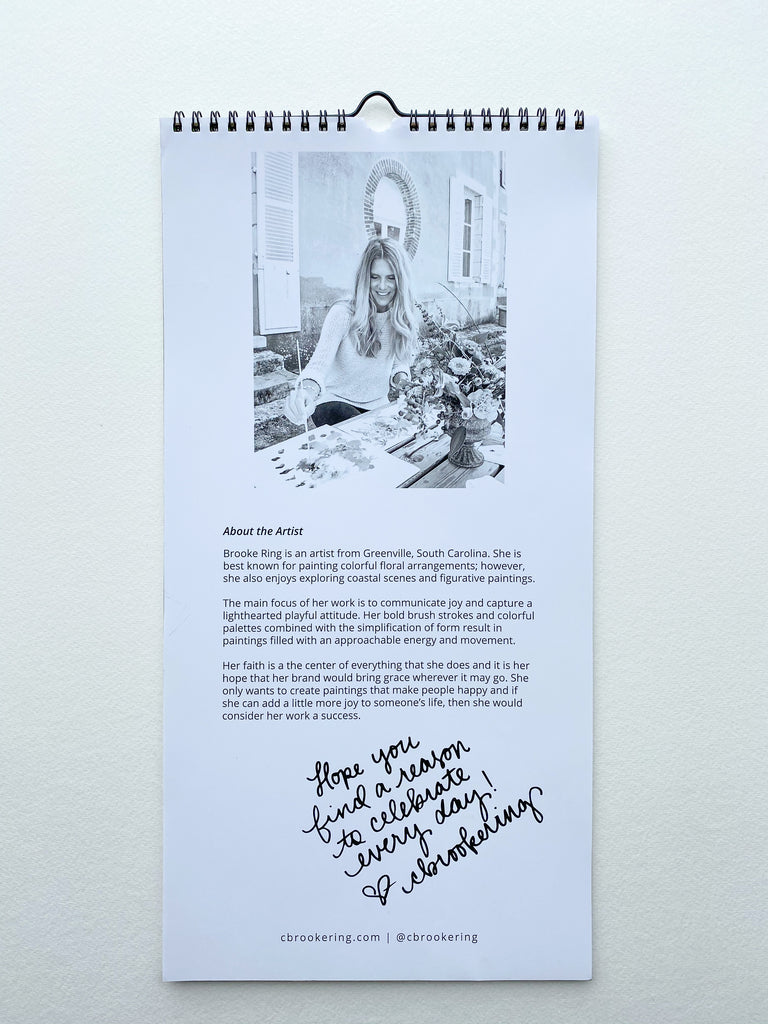 About the Artist
Brooke Ring is an artist from Greenville, South Carolina. She is
best known for painting colorful floral arrangements; however,
she also enjoys exploring coastal scenes and figurative paintings.
The main focus of her work is to communicate joy and capture a
lighthearted playful attitude. Her bold brush strokes and colorful
palettes combined with the simplification of form result in
paintings filled with an approachable energy and movement.
Her faith is a the center of everything that she does and it is her
hope that her brand would bring grace wherever it may go. She
only wants to create paintings that make people happy and if
she can add a little more joy to someone's life, then she would
consider her work a success.
Hope you
find a reason
to celebrate
every day!
♡ cbrookering
cbrookering.com | @cbrookering